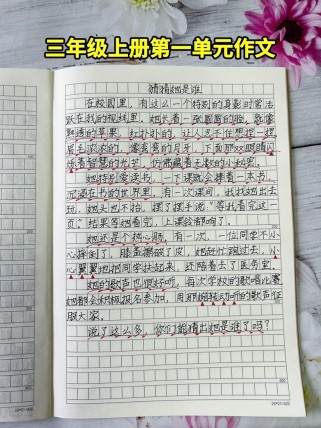 三年级上册第一单元作文
猜猜她是谁
在校园里，有这么一个特别的身影时常活
跃在我的视线里。她长着一张圆圆的脸，就像
熟透的苹果，红扑扑的，让人忍不住想捏一捏
眉毛浓浓的，像弯弯的月牙，下面那双眼睛闪
烁着智慧的光芒，仿佛藏着无数的小秘密。
她特别爱读书，一下课就会捧着一本书，
沉浸在书的世界里。有一次课间，我找她出去
玩，她头也不抬，摆了摆手说："等我看完这一
页。"结果等她看完，上课铃都响了。
她还是个热心肠，有一次，一位同学不小
心摔倒了，膝盖擦破了皮，她赶忙跑过去，小
心翼翼地把同学扶起来，还陪着去了医务室。
她的歌声也很好听。每次学校的歌唱比赛
她都会积极报名参加，用那婉转动听的歌声征
服大家。
说了这么多，你们能猜出她是谁了吗？